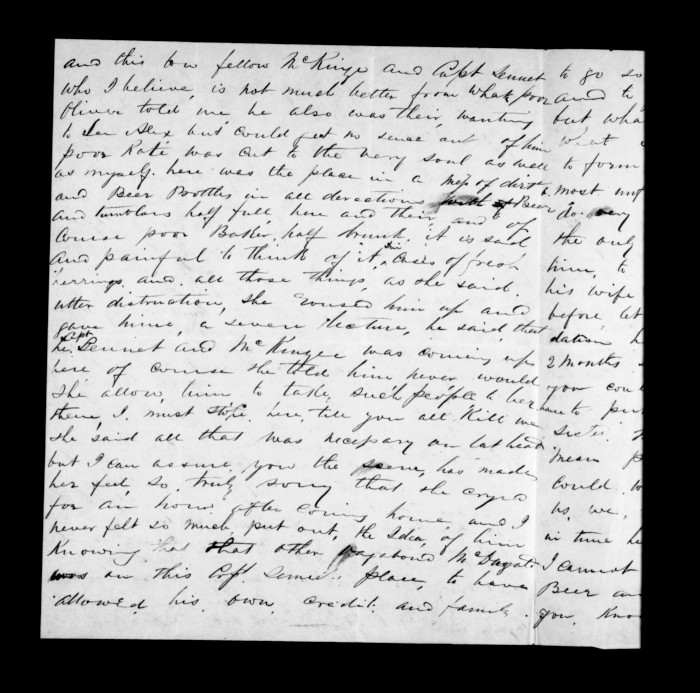 and this tow fellow McKinge and Capt Sennet
who I believe, is not much better from what poor
Oliver told me, he also was their, wanting
to see Alex but could get no sence out of him
poor Kate was cut to the very soul as well
as myself. here was the place in a mess of dirt &
and Beer Bottles in all directions Beer
and tumblars half full, here and their, and of
Course poor Baker, half drunk, it is sad
and painful to think of it, tin Cases of fresh
herrings, and all those things, as she said.
utter distruction, she roused him up and
gave hime, a severe lecture, he said, that
he, Capt Sennet and McKingee was coming up
here of course she told him never would
she allow, him to take, such people to her
then, I must stope here, till you all Kill me
she said all that was necessary on lat head
but I can assure you the scene, has made
her feel, so, truly sorry that she cryed
for an hour after coming home, and I
never felt so much put out, the Idea, of him
Knowing that that other vagabond
was on this Capt place, to have
allowed his own credit and family.
to go so
and to
but wha
to form
most
do very
the only
hime, to
his wife
before
dation h
2 months
your
to
sister.
mean
could. w
us, we,
in time he
I cannot
Beer an
you, Know